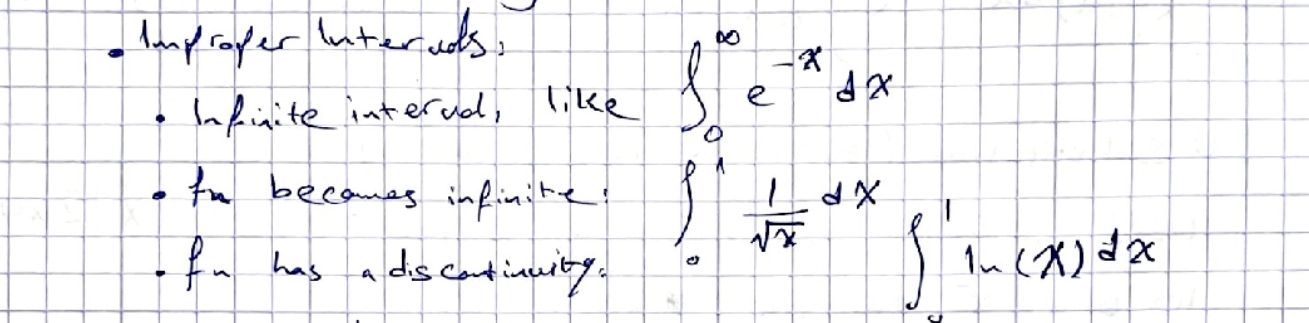 • Improper Intervals:
• Infinite interval, like ∫₀^∞ e^{-x} dx
• fn becomes infinite: ∫₀^1 1/√x dx
• fn has a discontinuity: ∫^1 ln(x) dx